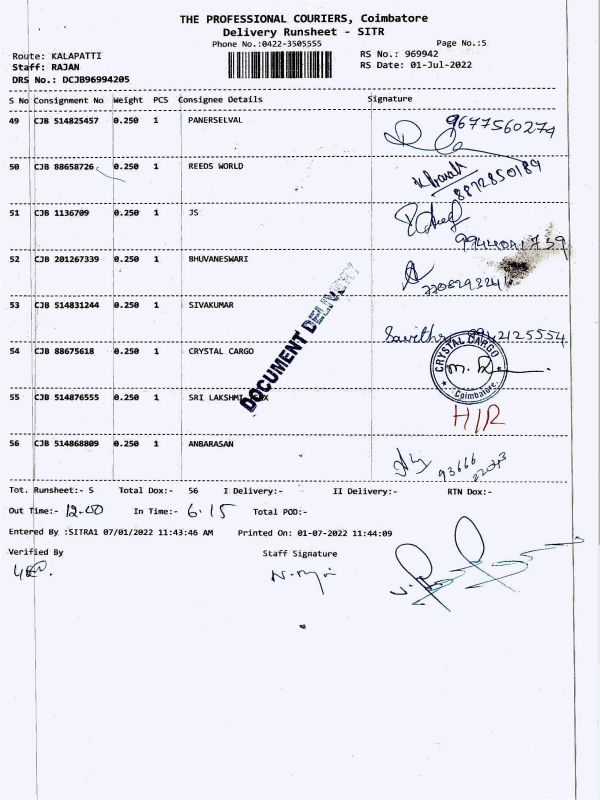 THE PROFESSIONAL COURIERS, Coimbatore
Delivery Runsheet - SITR
Phone No.:0422-3505555 Page No.:5
Route: KALAPATTI RS No.: 969942
Staff: RAJAN RS Date: 01-Jul-2022
DRS No.: DCJB96994205
S No Consignment No Weight PCS Consignee Details Signature
49 CJB 514825457 0.250 1 PANERSELVAL 9677560274
50 CJB 88658726 0.250 1 REEDS WORLD 8872850189
51 CJB 1136709 0.250 1 JS
52 CJB 201267339 0.250 1 BHUVANESWARI
53 CJB 514831244 0.250 1 SIVAKUMAR
54 CJB 88675618 0.250 1 CRYSTAL CARGO CRYSTAL CARGO Coimbatore.
DOCUMENT DELIVERY
55 CJB 514876555 0.250 1 SRI LAKSHMI H/R
56 CJB 514868809 0.250 1 ANBARASAN 93666
Tot. Runsheet:- 5 Total Dox:- 56 I Delivery:- II Delivery:- RTN Dox:-
Out Time:- 12.00 In Time:- 6.15 Total POD:-
Entered By :SITRA1 07/01/2022 11:43:46 AM Printed On: 01-07-2022 11:44:09
Verified By Staff Signature